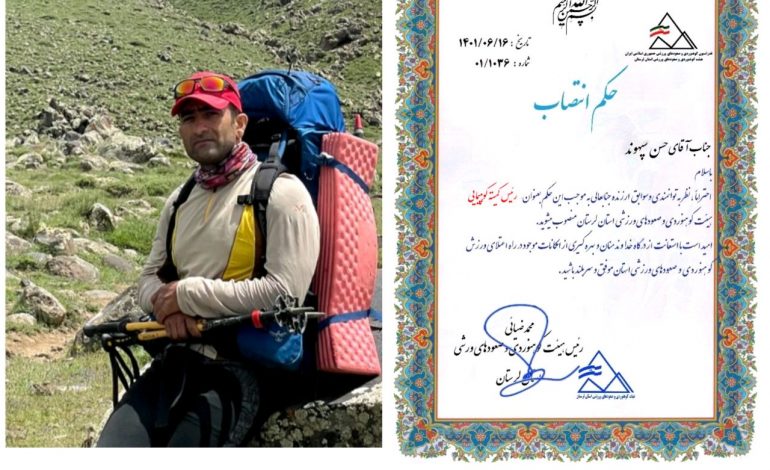 بسم الله الرحمن الرحیم
فدراسیون کوهنوردی و صعودهای ورزشی جمهوری اسلامی ایران
هیئت کوهنوردی و صعودهای ورزشی استان لرستان
تاریخ : ۱۴۰۱/۰۶/۱۶
شماره : ۰۱/۱۰۳۶
حکم انتصاب
جناب آقای حسن سپهوند
باسلام
احتراماً، نظر به توانمندی و سوابق ارزنده جنابعالی به موجب این حکم بعنوان رئیس کمیته کوهپیمایی
هیئت کوهنوردی و صعودهای ورزشی استان لرستان منصوب میشوید.
امید است با استعانت از درگاه خداوند منان و بهره گیری از امکانات موجود در راه اعتلای ورزش
کوهنوردی و صعودهای ورزشی استان موفق و سربلند باشید.
محمد ضیائی
رئیس هیئت کوهنوردی و صعودهای ورزشی
استان لرستان
هیئت کوهنوردی و صعودهای ورزشی استان لرستان